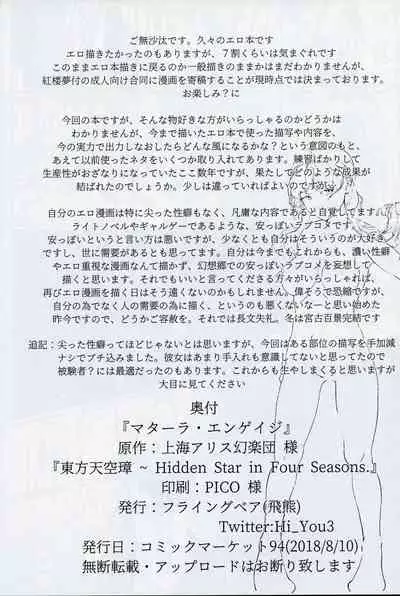 ご無沙汰です。久々のエロ本です
エロ描きたかったのもありますが、7割くらいは気まぐれです
このままエロ本描きに戻るのか一般描きのままかはまだわかりませんが、
紅楼夢付の成人向け合同に漫画を寄稿することが現時点では決まっております。
お楽しみ？に
今回の本ですが、そんな物好きな方がいらっしゃるのかどうかは
わかりませんが、今まで描いたエロ本で使った描写や内容を、
今の実力で出力しなおしたらどんな風になるかな？という意図のもと、
あえて以前使ったネタをいくつか取り入れてあります。練習ばかりして
生産性がおざなりになっていたここ数年ですが、果たしてどのような成果が
結ばれたのでしょうか。少しは違っていればよいのですが…
自分のエロ漫画は特に尖った性癖もなく、凡庸な内容であると自覚してます。
ライトノベルやギャルゲーであるような、安っぽいラブコメです。
安っぽいというと言い方は悪いですが、少なくとも自分はそういうのが大好き
ですし、世に需要があるとも思ってます。自分は今までもこれからも、濃い性癖
やエロ重視な漫画なんて描かず、幻想郷での安っぽいラブコメを妄想して
描くと思います。それでもいいと言ってくださる方々がいらっしゃれば、
再びエロ漫画を描く日はそう遠くないのかもしれません。偉そうで恐縮ですが、
自分の為でなく人の需要の為に描く、というのも悪くないなーと思い始めた
昨今ですので、どうかご容赦を。それでは長文失礼。冬は宮古百景完結です
追記：尖った性癖ってほどじゃないとは思いますが、今回はある部位の描写を手加減
ナシでブチ込みました。彼女はあまり手入れも意識してないと思ってたので
被験者？には最適だったのもあります。これからも生やしまくると思いますが
大目に見てください
奥付
『マターラ・エンゲイジ』
原作：上海アリス幻楽団 様
『東方天空璋 ~ Hidden Star in Four Seasons.』
印刷：PICO 様
発行：フライングベア(飛熊)
Twitter:Hi_You3
発行日：コミックマーケット94(2018/8/10)
無断転載・アップロードはお断り致します